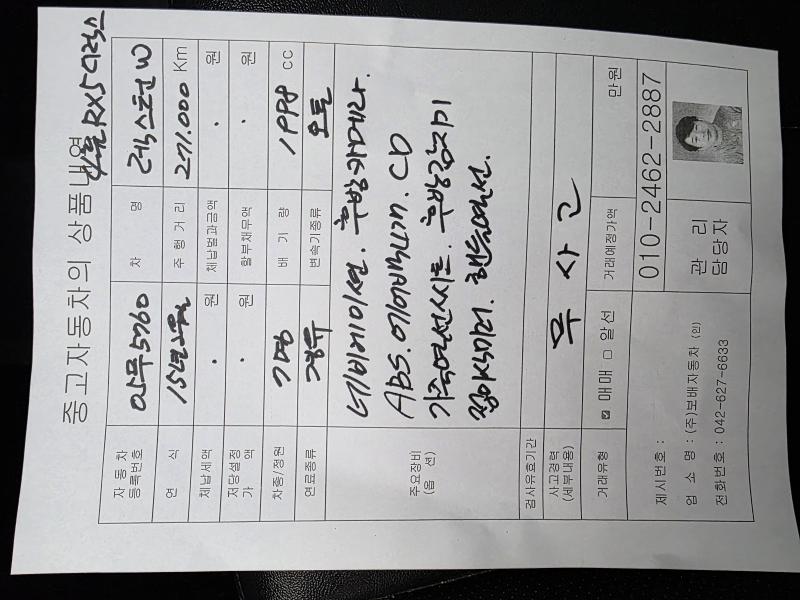 중고자동차의 상품내역
RX5 디럭스
자동차 등록번호 5760 차 명 렉스턴 W
연 식 15년 주행거리 271.000 Km
체납세액 . 원 체납벌과금액 . 원
저당설정 가액 . 원 할부채무액 . 원
차종/정원 7명 배 기 량 1998 cc
연료종류 경유 변속기종류 오토
주요장비 (옵 션)
네비게이션. 후방카메라.
Abs. 에어백2개. CD
가죽열선시트. 후방감지기
접이식미러. 핸들열선.
검사유효기간
사고경력 (세부내용) 무 사 고
거래유형 ☑ 매매 □ 알선 거래예정가액 만원
제시번호 : 010-2462-2887
업 소 명 : (주)보배자동차 (인)
전화번호 : 042-627-6633
관 리
담당자